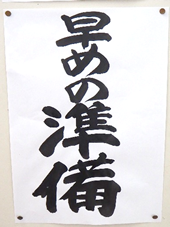 早めの準備